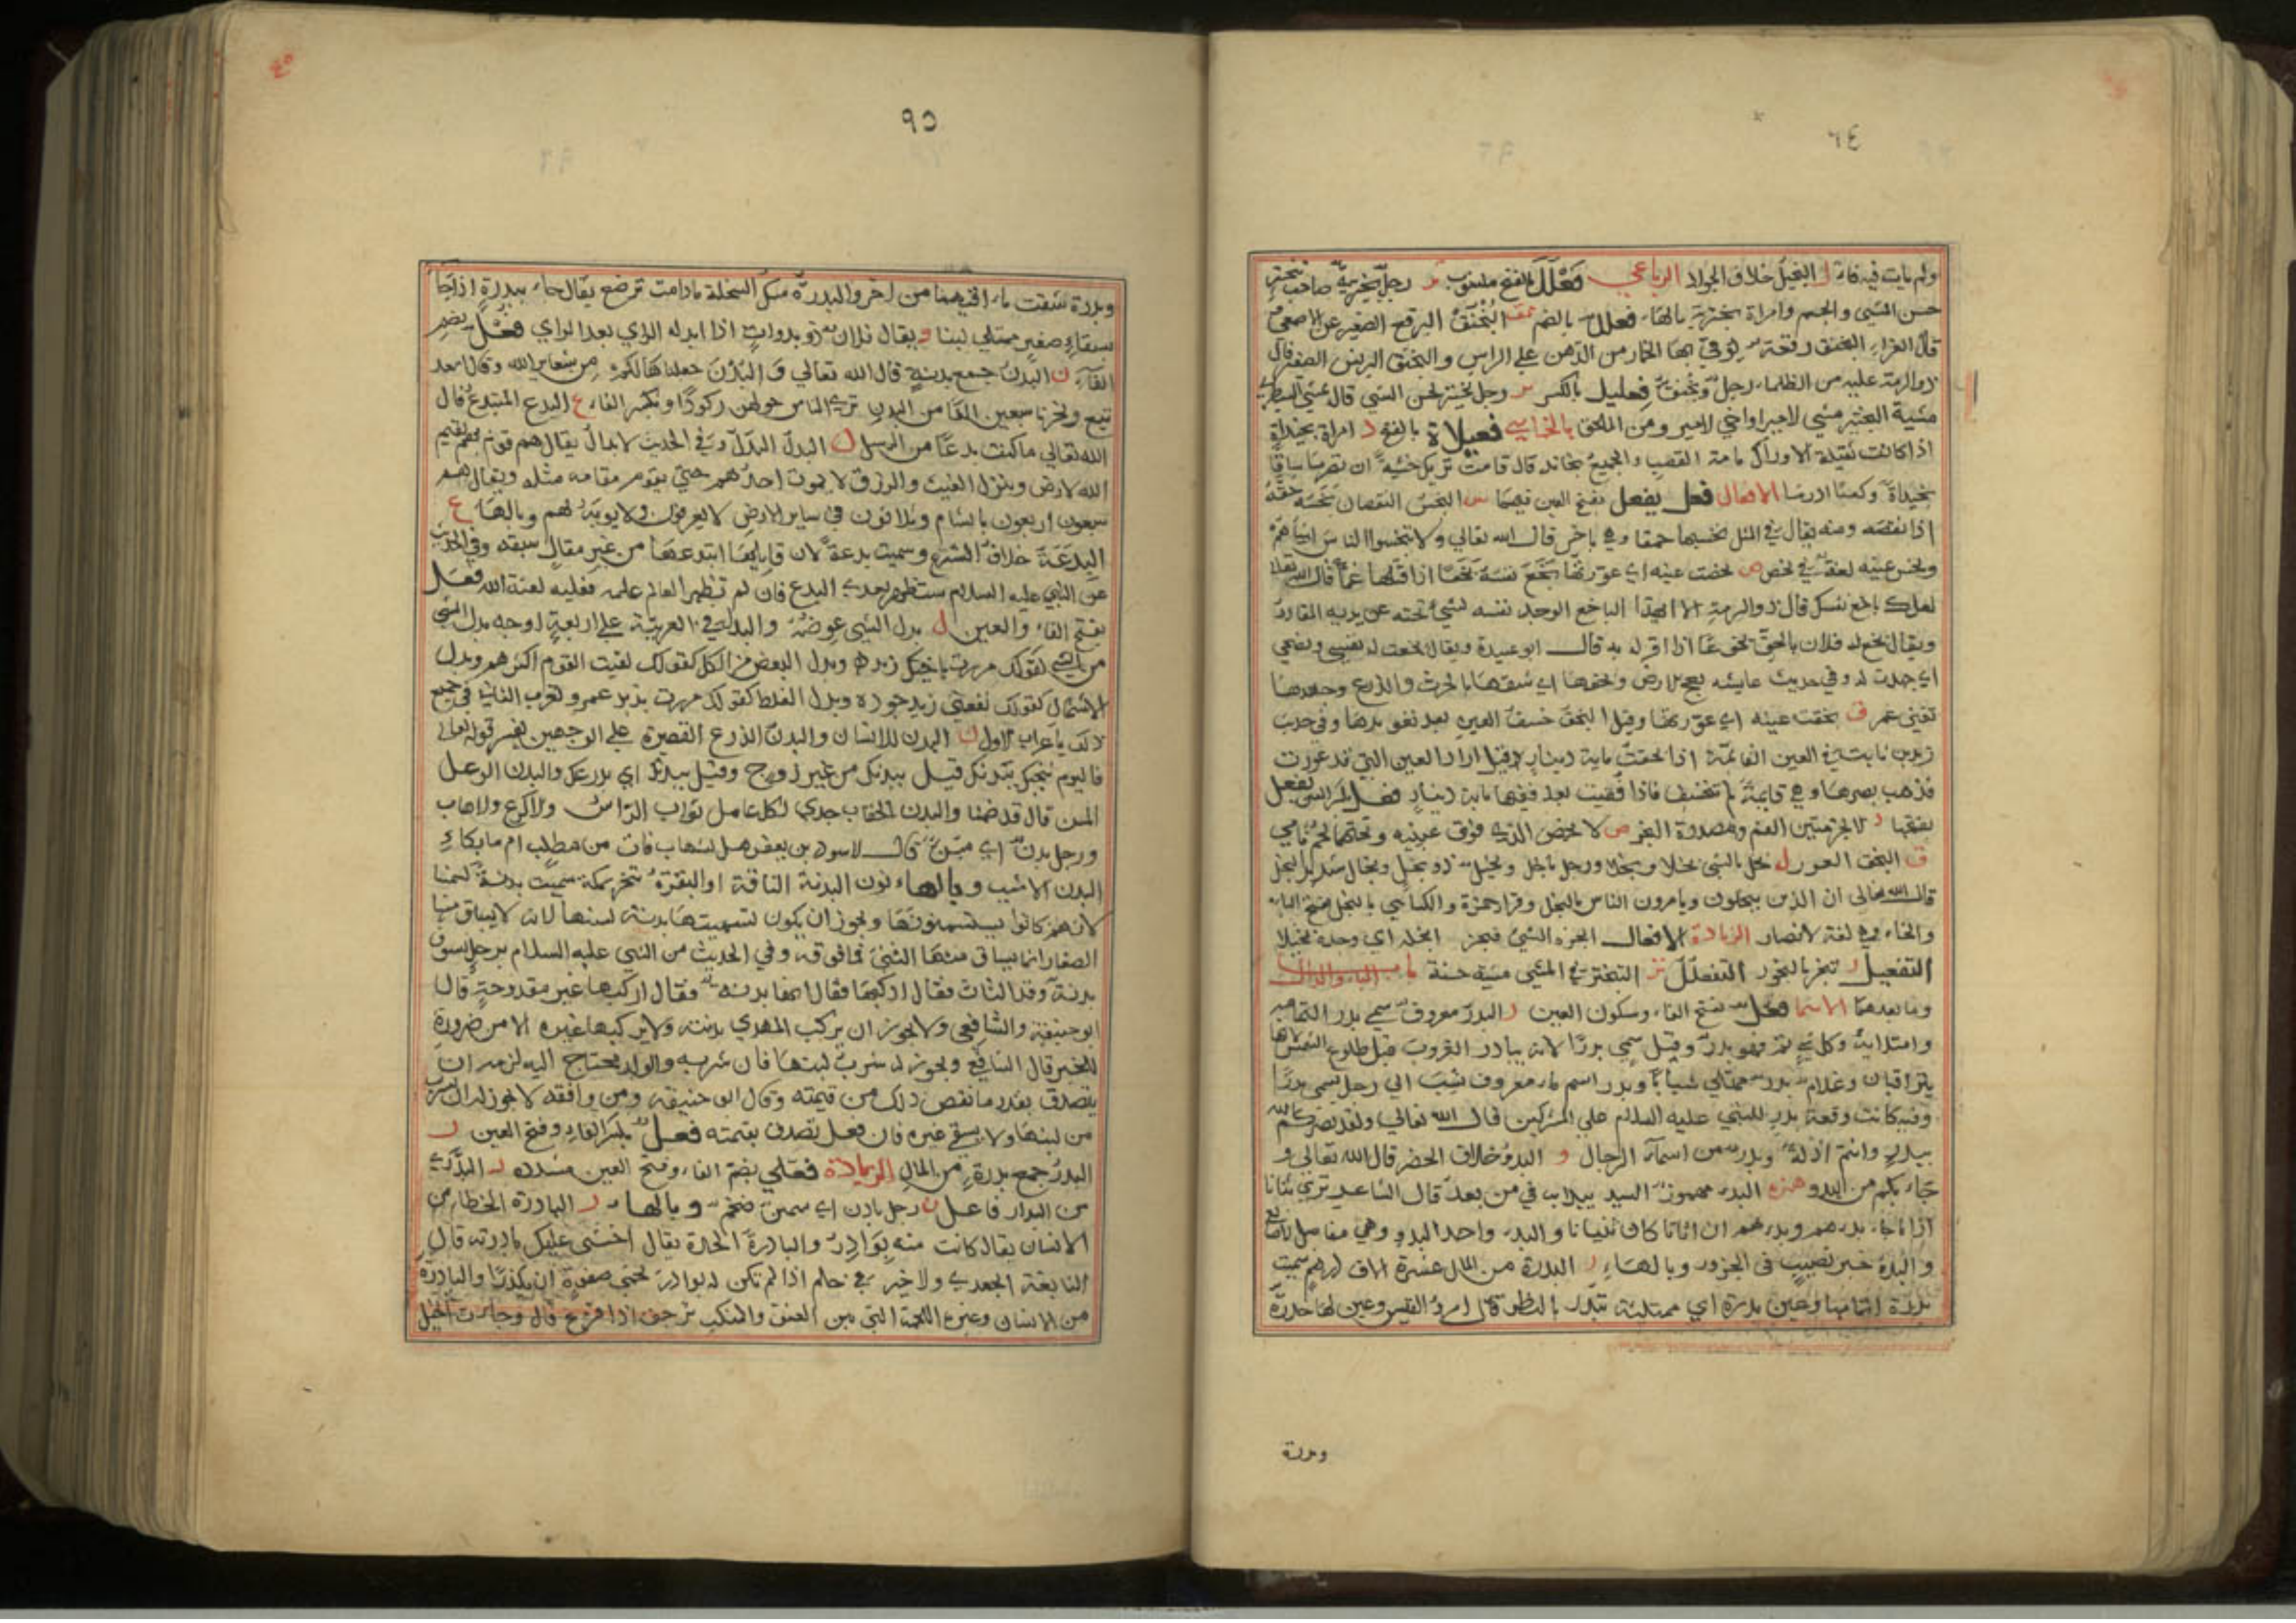 ٦٤
ولم يات فيه فاء ل البخيل خلاف الجواد الرباعي فَعْلَلَ بالفتح منسوب رجل بختري صاحب تبختر
حسن المشي والجسم وامراة بخترية بالهاء فعلل بالضم البُخْنُقُ البرقع الصغير عن الاصمعي
قال الفراء البخنق رقعة توقي بها الخمار من الدهن علي الراس والبخنق البرنس الصغير قال
ذو الرمة عليه من الظلماء فعليل بالكسر رجل بختير لحسن المشي قال
مشية البختير مشي لامير او اخي لامير ومن الملحق بالخماسي فعيلاة بالفتح د امراة بخنداة
اذا كانت ثقيلة الاوراك تامة القصب والجميع بخاند قال قامت تريك خشية ان تصرما ساقا
بخنداة وكعبا ادرما الافعال فعل يفعل بفتح العين فيهما س البخس النقصان بخسه حقه
اذا نقصه ومنه يقال في المثل تحسبها حمقا وهي باخس قال الله تعالي ولا تبخسوا الناس اشياءهم
وبخس عينه لغة في بخص ص بخصت عينه اي عورتها بَخَعَ نفسه بخعا اذا قتلها غما قال الله تعالى
لعلك باخع نفسك قال ذو الرمة الا ايهذا الباخع الوجد نفسه لشيء نحته عن يديه المقادر
ويقال بخع له فلان بالحق بخوعا اذا اقر له به قال ابو عبيدة ويقال بخعت له نفسي ونصحي
اي جهدت له وفي حديث عايشه بعج الارض وبخعها اي شقها بالحرث والزرع
تعني عمر ق بخقت عينه اي عورتها وقيل البخق خسف العين بعد عورها وفي حديث
زيد بن ثابت في العين القائمة اذا بخقت ماية دينار قيل اراد العين التي قد عورت
فذهب بصرها وهي قايمة لم تنخسف فاذا فقيت بعد ففيها ماية دينار فعل بكسر العين يفعل
بفتحها ص لابخص الذي فوق عينيه وتحتهما لحم ناتي
ق البخق العور ل بخل بالشي بخلا وبخلا ورجل باخل وبخيل ذو بخل وبخال شديد البخل
قال الله تعالي ان الذين يبخلون ويامرون الناس بالبخل وقرا حمزة والكسائي بالبخل بفتح الباء
والخاء وهي لغة لانصار الزيادة الافعال ابخره الشيء فبخر ابخله اي وجده بخيلا
التفعيل ر تبخر بالبخور التفعلل تر التبختر في المشي مشية حسنة باب الباء والدال
وما بعدهما الاسما فعل بفتح الفاء وسكون العين ر البدر معروف سمي بدر التمامه
وامتلايه وكل شي تم فهو بدر وقيل سمي بدرا لانه يبادر الغروب قبل طلوع الشمس لانهما
يتراقبان وغلام بدر ممتلي شبابا وبدر اسم ماء معروف نسب الي رجل يسمي بدرا
وفيه كانت وقعة بدر للنبي عليه السلام علي المشركين قال الله تعالي ولقد نصركم الله
ببدر وانتم اذلة وبدر من اسماء الرجال و البدو خلاف الحضر قال الله تعالي و
جاء بكم من البدو همزه البدء مهموز السيد يبدا به في من بعد قال الشاعر تري ثنانا
اذا ما جاء بدءهم وبدءهم ان اتانا كان ثنيانا والبدء واحد البدو وهي مفاصل
والبدء خير نصيب في الجزور وبالهاء ر البدرة من المال عشرة الاف درهم سميت
بدرة لتمامها وعين بدرة اي ممتلية تبدر بالنظر قال امرؤ القيس وعين لها حدرة
وبدرة
٩٥
وبدرة شقت مآقيهما من اخر والبدرة مسك السخلة مادامت ترضع يقال جاء ببدرة اذا جا
بسقاء صغير ممتلي لبنا و يقال فلان ذو بدوات اذا بدا له الراي بعد الراي فعل بضم
الفاء ن البدن جمع بدنة قال الله تعالي وَالبُدْنَ جعلناها لكم من شعاير الله وقال اسعد
تبع ونحرنا سبعين الفا من البدن تري الناس حولهن ركودا وبكسر الفاء ع البدع المبتدع قال
الله تعالي ما كنت بدعا من الرسل ل البدل البدل وفي الحديث لابدال يقال هم قوم بهم يقيم
الله لارض وينزل الغيث والرزق لا يموت احدهم حتي يقوم مقامه مثله ويقال هم
سبعون اربعون بالشام وثلاثون في ساير الارض لا يعرفون ولا يوبه لهم وبالهاء ع
البدعة خلاف الشرع وسميت بدعة لان قايلها ابتدعها من غير مقال سبقه وفي الحديث
عن النبي عليه السلام ستظهر بعدي البدع فان لم يظهر العالم علمه فعليه لعنة الله فعل
بفتح الفاء والعين ل بدل الشي عوضه والبدل في العربية علي اربعة اوجه بدل الشي
من الشي كقولك مررت باخيك زيد وبدل البعض من الكل كقولك لقيت القوم اكثرهم وبدل
الاشتمال كقولك نفعني زيد جوده وبدل الغلط كقولك مررت بزيد عمرو تعرب الثاني في جميع
ذلك باعراب الاول ن البدن للانسان والبدن الدرع القصيرة علي الوجهين يفسر قوله تعالى
فاليوم ننجيك ببدنك قيل ببدنك من غير روح وقيل ببدنك اي بدرعك والبدن الوعل
المسن قال قد ضمنا والبدن الحقاب جدي لكل عامل ثواب الراس والاكرع والاهاب
ورجل بدن اي مسن قال لاسود بن يعفر هل لشباب فات من مطلب ام ما بكاء
البدن الاشيب وبالهاء نون البدنة الناقة او البقرة تنحر بمكة سميت بدنة لسمنها
لانهم كانوا يستسمنونها ويجوز ان يكون لتسميتها بدنة لسنها لانه لا يساق منها
الصغار انما يساق منها الثني فما فوقه وفي الحديث من النبي عليه السلام برجل يسوق
بدنة فقال اركبها فقال انها بدنه فقال اركبها غير مقدوحة قال
ابو حنيفة والشافعي ولا يجوز ان يركب المهدي بدنته ولا يركبها غيره الا من ضرورة
للخبر قال الشافعي ويجوز له شرب لبنها فان شربه والولد يحتاج اليه لزمه ان
يتصدق بقدر ما نقص ذلك من قيمته وقال ابو حنيفة ومن وافقه لا يجوز له ان يشرب
من لبنها ولا يسقي غيره فان فعل تصدق بقيمته فعل بكسر الفاء وفتح العين ر
البدر جمع بدرة من المال الزيادة فعلي بضم الفاء وفتح العين مشدده ر البدري
من البدار فاعل ن رجل بادن اي سمين ضخم وبالهاء ر البادرة الخطاء من
الانسان يقال كانت منه بوادر والبادرة الحدة يقال اخشي عليك بادرته قال
النابغة الجعدي ولا خير في حلم اذا لم تكن له بوادر تحمي صفوه ان يكدرا والبادرة
من الانسان وغيره اللحمة التي بين العنق والمنكب ترجف اذا فزع قال وجاءت الخيل